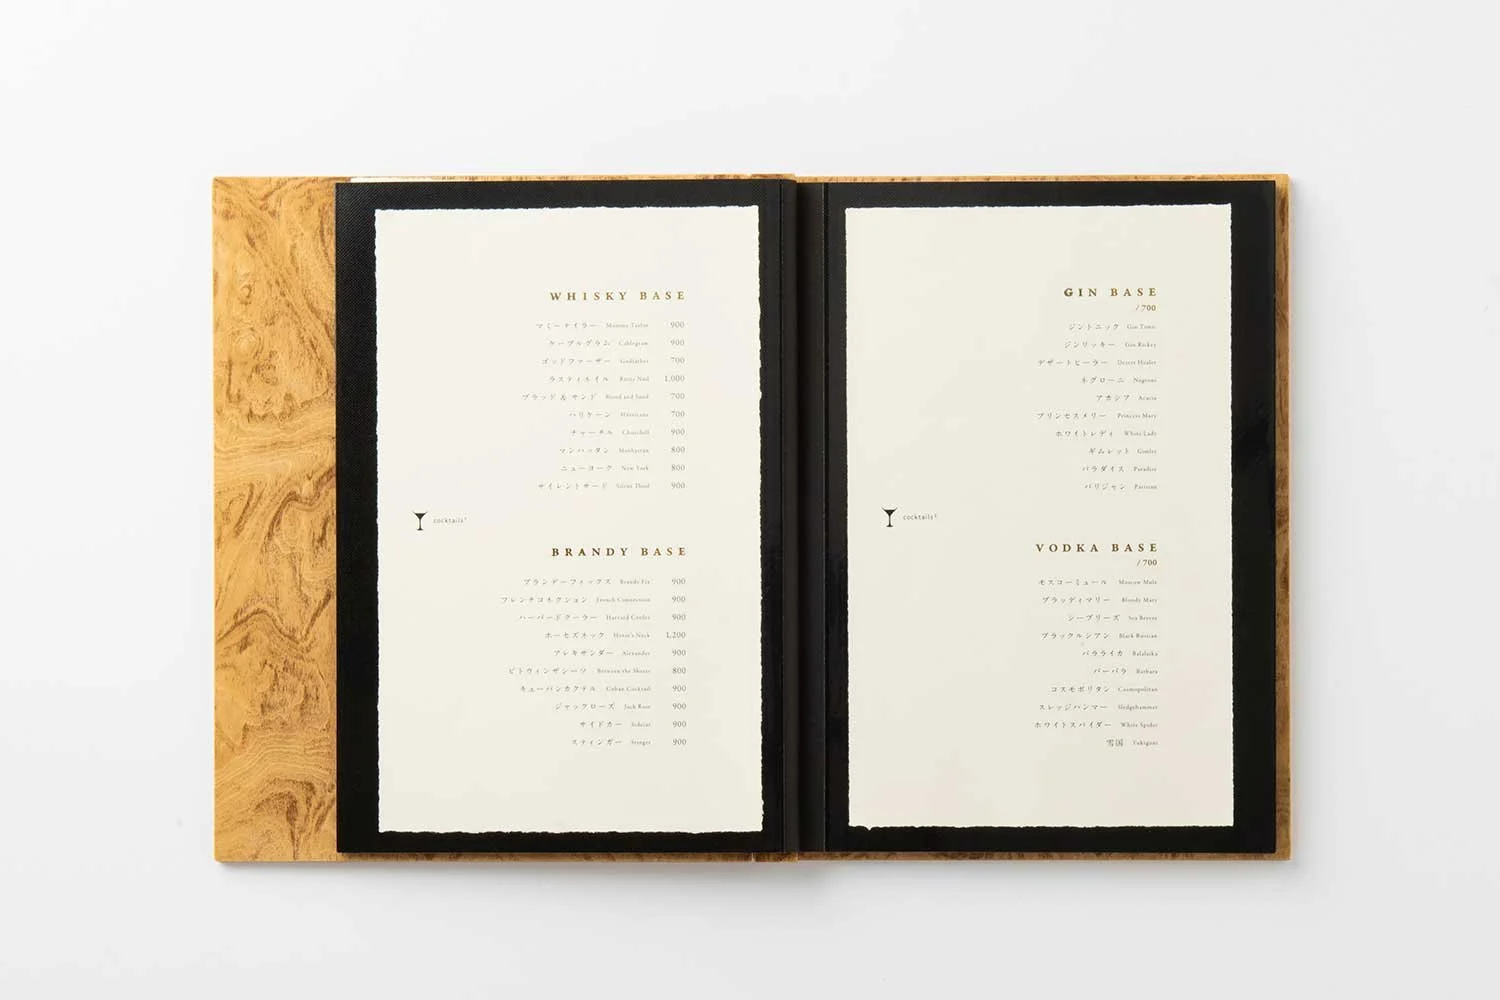 WHISKY BASE
マミーテイラー Mamma Taylor 900
ケーブルグラム Cablegram 900
ゴッドファーザー Godfather 700
ラスティネイル Rusty Nail 1,000
ブラッド & サンド Blood and Sand 700
ハリケーン Hurricane 700
チャーチル Churchill 900
マンハッタン Manhattan 800
ニューヨーク New York 800
サイレントサード Silent Third 900
cocktails
BRANDY BASE
ブランデーフィックス Brandy Fix 900
フレンチコネクション French Connection 900
ハーバードクーラー Harvard Cooler 900
ホーセズネック Horse's Neck 1,200
アレキサンダー Alexander 900
ビトウィンザシーツ Between the Sheets 800
キューバンカクテル Cuban Cocktail 900
ジャックローズ Jack Rose 900
サイドカー Sidecar 900
スティンガー Stinger 900
GIN BASE
/ 700
ジントニック Gin Tonic
ジンリッキー Gin Rickey
デザートヒーラー Desert Healer
ネグローニ Negroni
アカシア Acacia
プリンセスメリー Princess Mary
ホワイトレディ White Lady
ギムレット Gimlet
パラダイス Paradise
パリジャン Parisian
cocktails
VODKA BASE
/ 700
モスコーミュール Moscow Mule
ブラッディマリー Bloody Mary
シーブリーズ Sea Breeze
ブラックルシアン Black Russian
バラライカ Balalaika
バーバラ Barbara
コスモポリタン Cosmopolitan
スレッジハンマー Sledgehammer
ホワイトスパイダー White Spider
雪国 Yukiguni